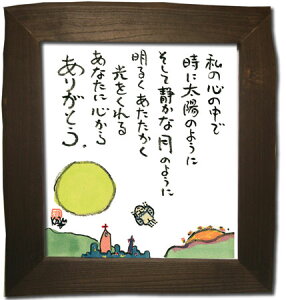 私の心の中で
時に太陽のように
そして静かな月のように
明るくあたたかく
光をくれる
あなたに心から
ありがとう。